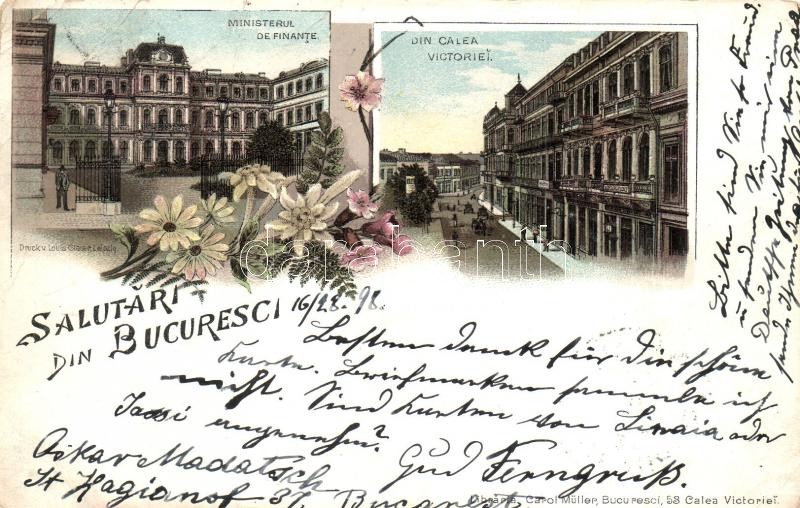 MINISTERUL
DE FINANTE.
DIN CALEA
VICTORIEĬ.
Druck v. Louis Glaser, Leipzig
darabanth.com
SALUTĂRI
DIN BUCURESCI 16/28.-98.
Besten dank für Die schöne
Karte. Briefmarken sammle ich
nicht. Sind Karten von Sinaia oder
Jassi angenehm?
Gud Ferngruß.
Oskar Madatsch
St Hagianof 37, Bucarest
Bitte sind Sie so
u senden Sie mir eine
Deutsche Zeitung
Librăria, Carol Müller, Bucuresci, 53 Calea Victorieĭ.